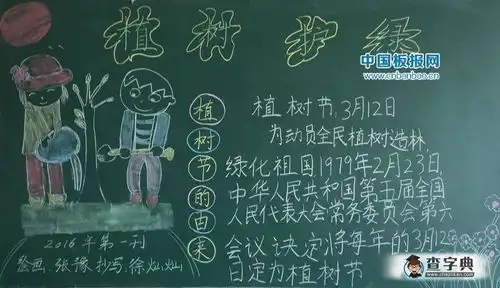 植树护绿
中国板报网
www.cnbanbao.cn
植树节的由来
植树节.3月12日
为动员全民植树造林
绿化祖国1979年2月23日
中华人民共和国第五届全国
人民代表大会常务委员会第六
会议决定将每年的3月12
日定为植树节
2016年第一刊
绘画.张豫 抄写.徐灿灿
查字典